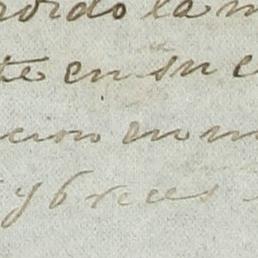 rdido la m
te en su c
cion en m
y 6 reces